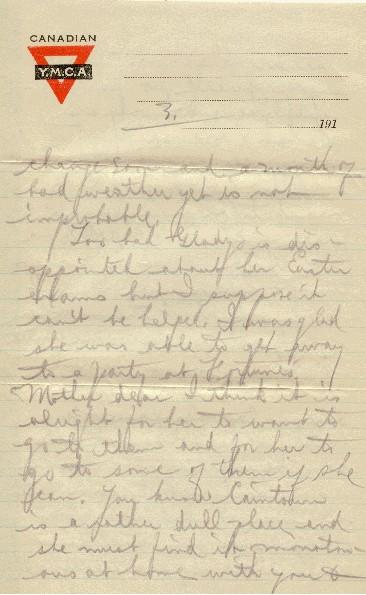 CANADIAN
Y.M.C.A.
3.
191
change soon and a month of
bad weather yet is not
improbable.
Too bad Gladys is dis-
appointed about her Easter
exams but I suppose it
can't be helped. I was glad
she was able to get away
to a party at
Mother dear I think it is
alright for her to want to
go to them and for her to
go to some of them if she
can. You know Caintown
is a rather dull place and
she must find it monoton-
ous at home with you &